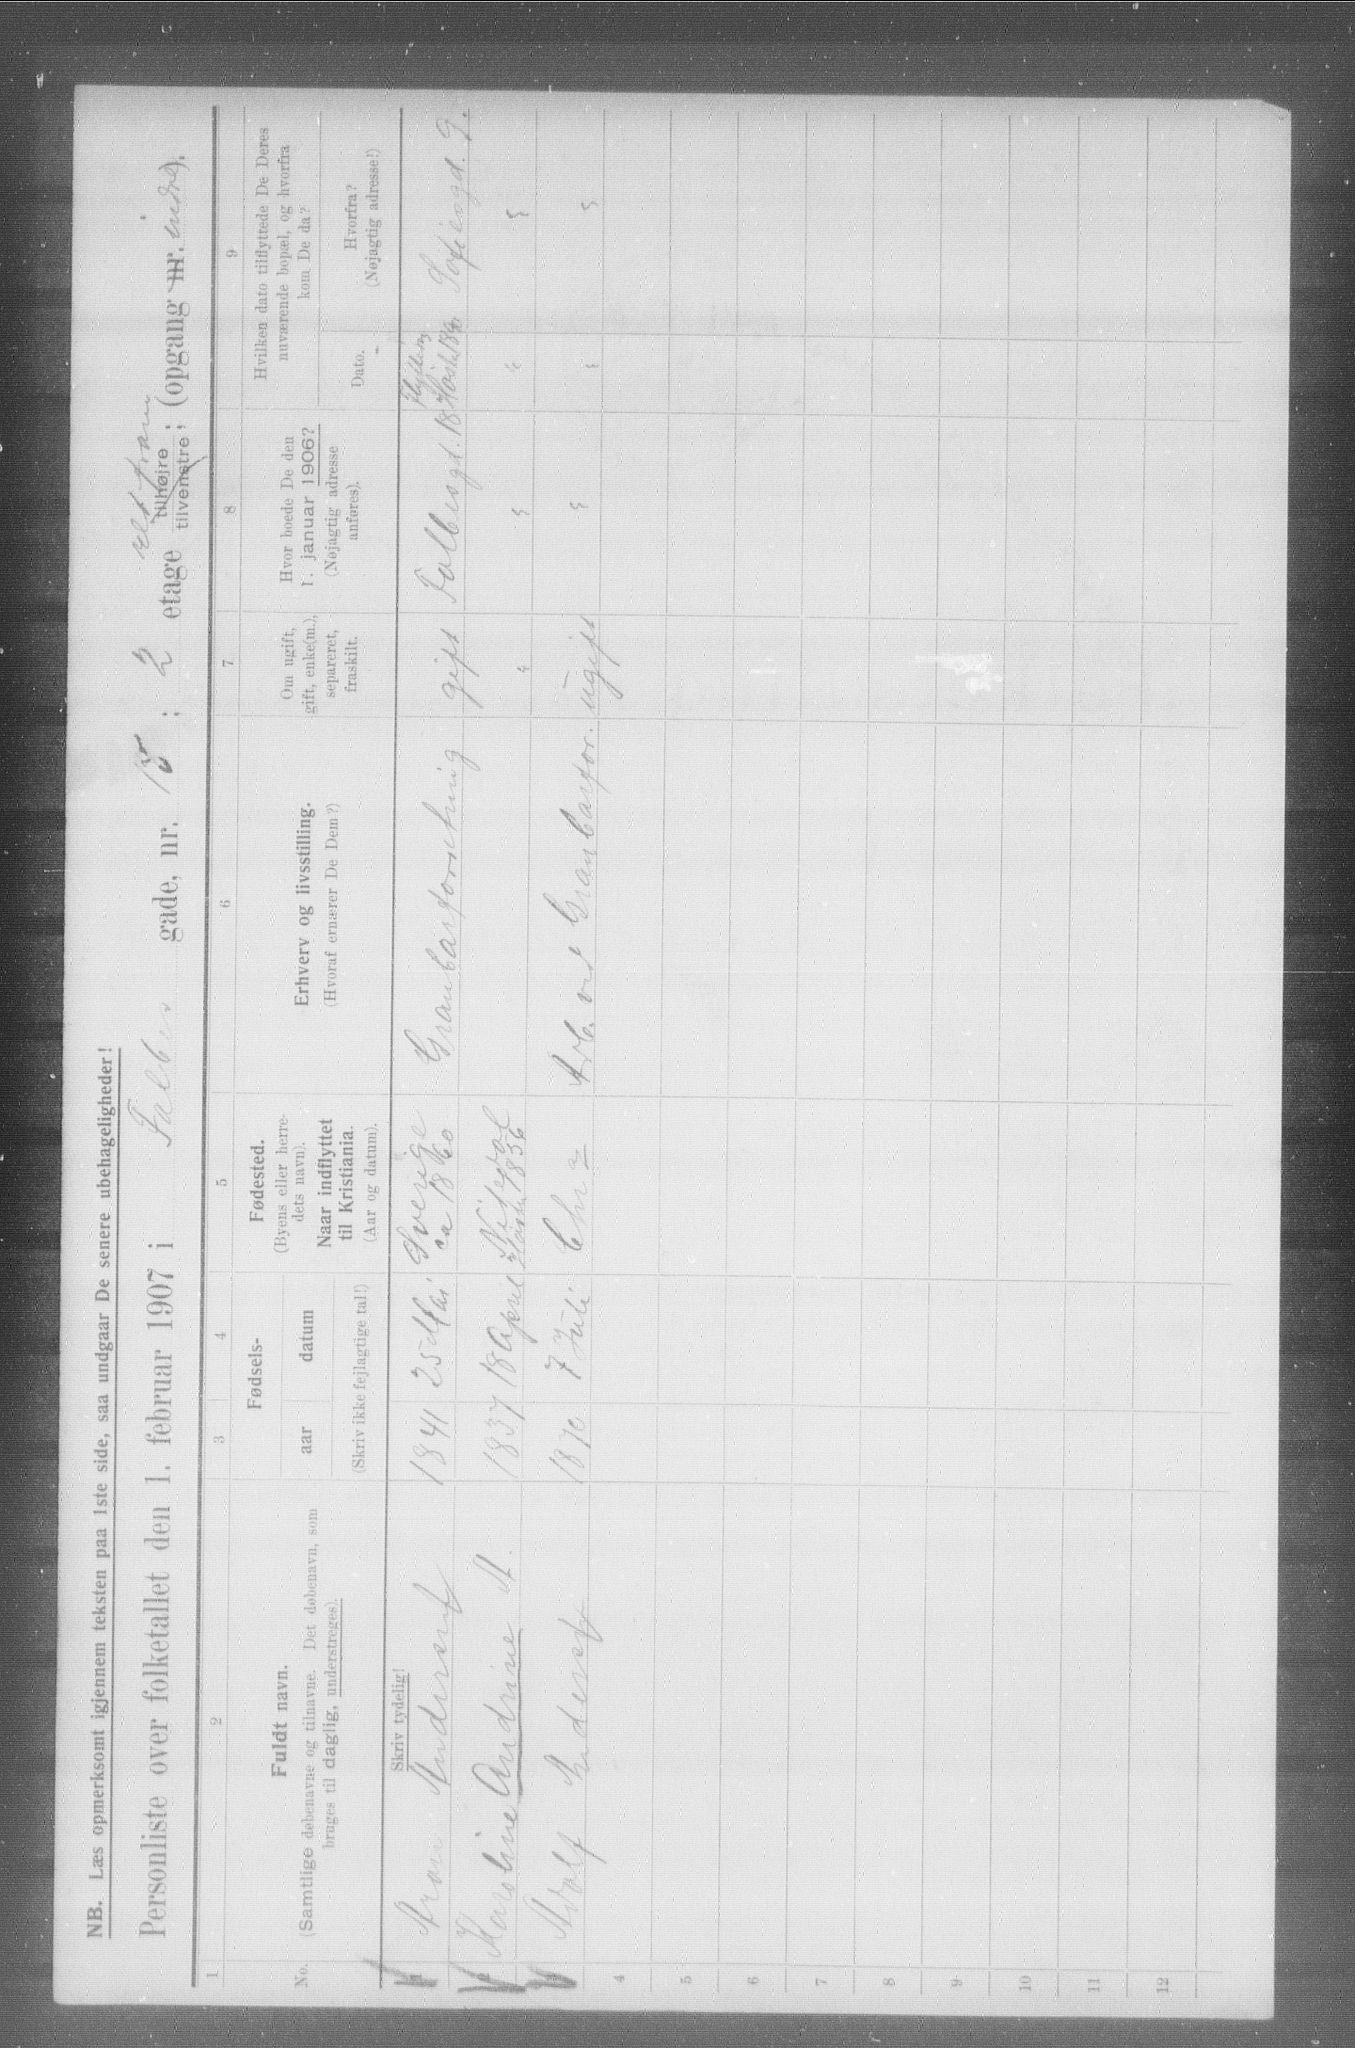 NB. Læs opmerksomt igjennem teksten paa 1ste side, saa undgaar De senere ubehageligheder!
Personliste over folketallet den 1. februar 1907 i Falbes gade, nr. 15 ; 2 etage tilhøjre tilvenstre ; (opgang nr. indre).
ret fram
1 2 3 4 5 6 7 8 9
No.
Fuldt navn.
(Samtlige døbenavne og tilnavne. Det døbenavn, som
bruges til daglig, understreges).
Fødsels-
aar datum
(Skriv ikke fejlagtige tal!)
Fødested.
(Byens eller herre-
dets navn).
Naar indflyttet
til Kristiania.
(Aar og datum).
Erhverv og livsstilling.
(Hvoraf ernærer De Dem?)
Om ugift,
gift, enke(m.),
separeret,
fraskilt.
Hvor boede De den
1. januar 1906?
(Nøjagtig adresse
anføres).
Hvilken dato tilflyttede De Deres
nuværende bopæl, og hvorfra
kom De da?
Dato.
Hvorfra?
(Nøjagtig adresse!)
Skriv tydelig!
1 Aron Andersen 1841 25 Mai Sverige ca 1860 Granbarforretning gift Falbesgt. 18 Flytting Høsten Sofiesgd. 9.
2 Karoline Andrine M. 1837 18 April Høsten 1856 " " " "
3 Adolf Andersen 1870 7 Juli Chr.a Arb. ved Granbarfor. ugift " " "
4
5
6
7
8
9
10
11
12